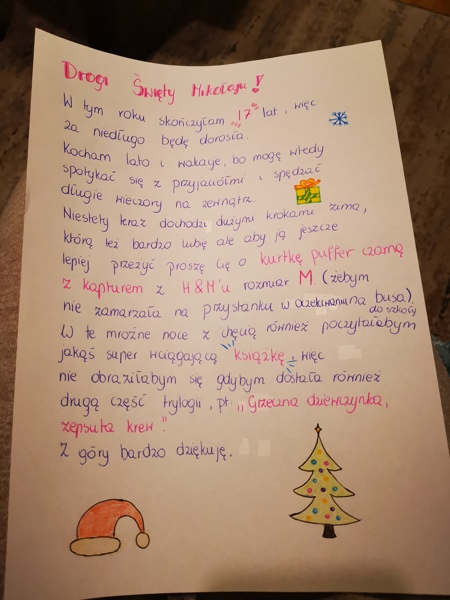 Drogi Święty Mikołaju!
W tym roku skończyłam 17 lat, więc
za niedługo będę dorosła.
Kocham lato i wakacje, bo mogę wtedy
spotykać się z przyjaciółmi i spędzać
długie wieczory na zewnątrz.
Niestety teraz dochodzi dużymi krokami zima,
którą też bardzo lubię ale aby ją jeszcze
lepiej przeżyć proszę Cię o kurtkę puffer czarną
z kapturem z H&M'u rozmiar M (żebym
nie zamarzała na przystanku w oczekiwaniu na busa).
do szkoły
W te mroźne noce z chęcią również poczytałabym
jakąś super wciągającą książkę, więc
nie obraziłabym się gdybym dostała również
drugą część trylogii, pt. „Grzeczna dziewczynka,
zepsuta krew."
Z góry bardzo dziękuję.